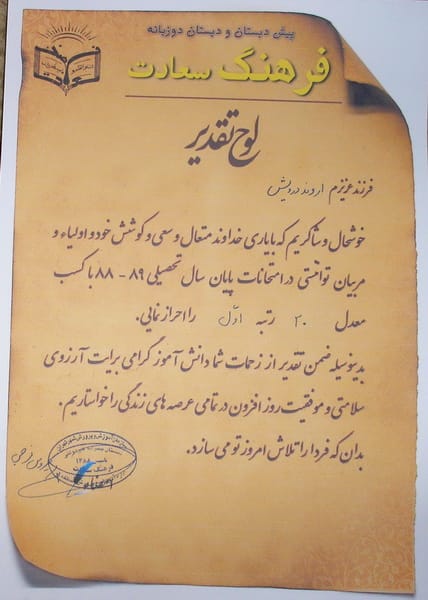 پیش دبستان و دبستان دوزبانه
فرهنگ سعادت
لوح تقدیر
فرزند عزیزم اروند درویش
خوشحال و شاکریم که با یاری خداوند متعال و سعی و کوشش خود و اولیاء و
مربیان توانستی در امتحانات پایان سال تحصیلی ۸۹ - ۸۸ با کسب
معدل ۲۰ رتبه اول را احراز نمایی.
بدینوسیله ضمن تقدیر از زحمات شما دانش آموز گرامی برایت آرزوی
سلامتی و موفقیت روز افزون در تمامی عرصه های زندگی را خواستاریم.
بدان که فردا را تلاش امروز تو می سازد.
تاسیس ۱۳۸۸
فرهنگ سعادت